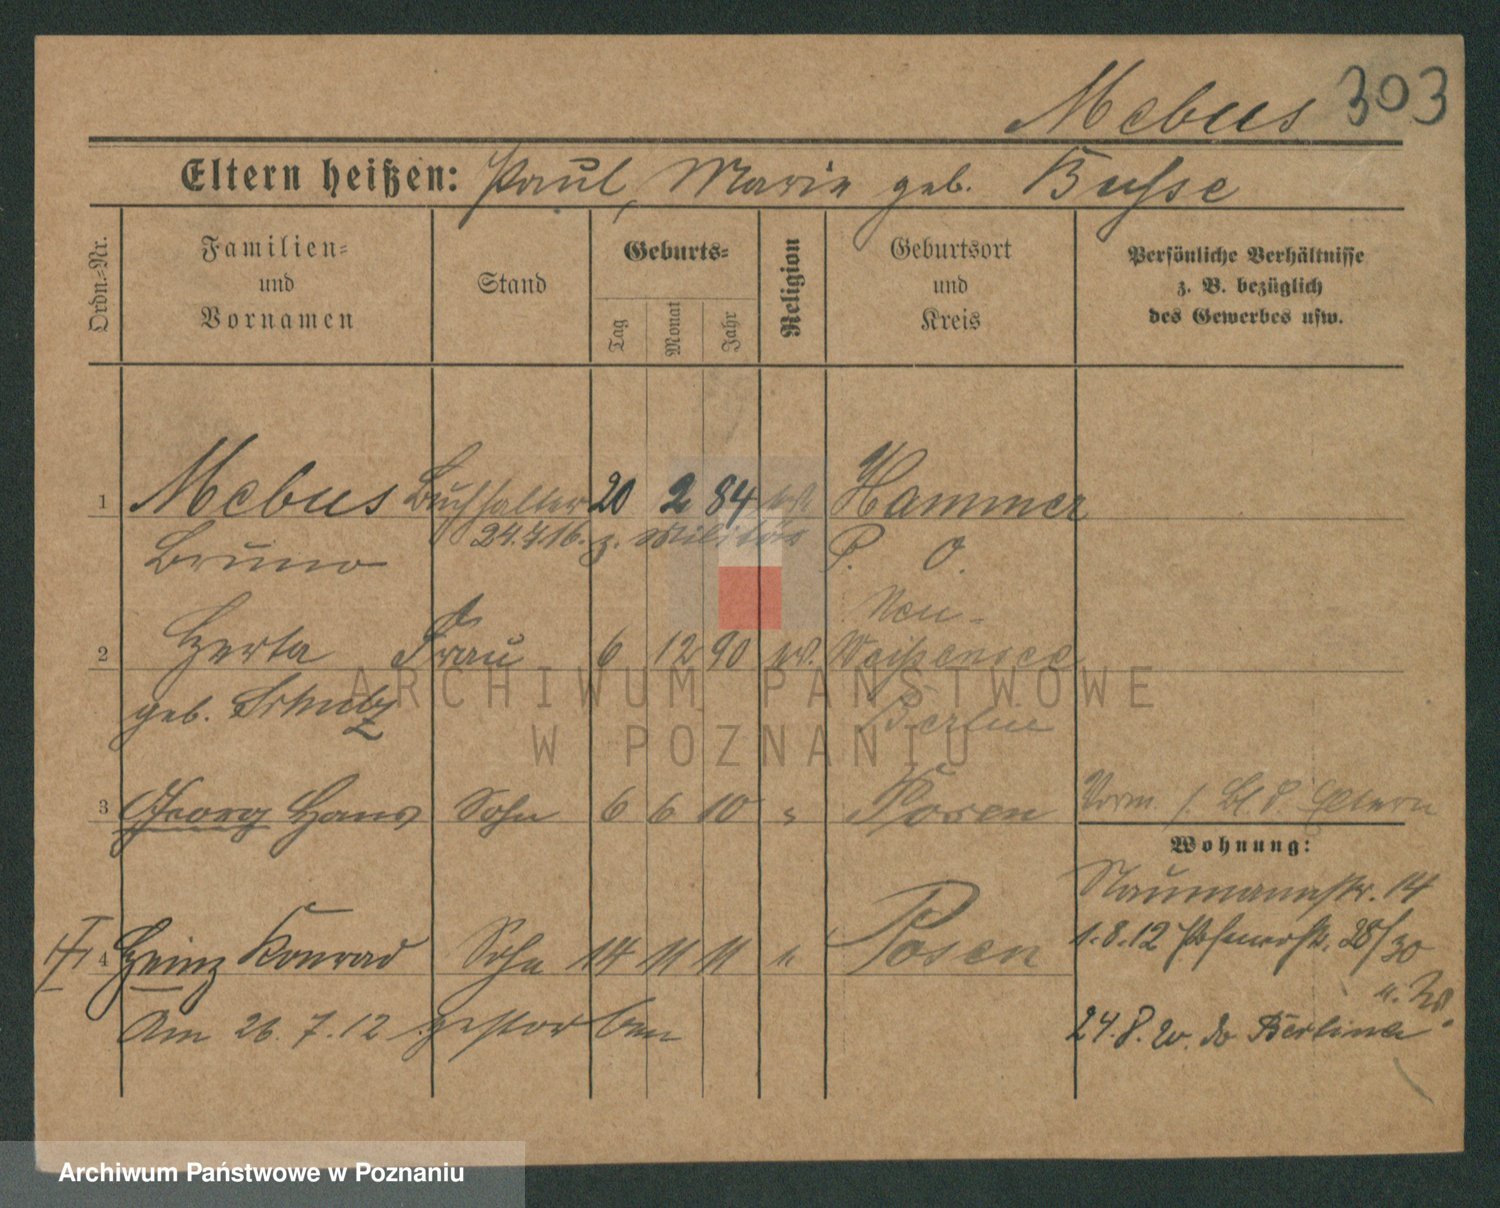 Mebus 303
Eltern heißen: Paul, Marie geb. Busse
Ordn.-Nr.
Familien-
und
Vornamen
Stand
Geburts-
Tag
Monat
Jahr
Religion
Geburtsort
und
Kreis
Persönliche Verhältnisse
z. B. bezüglich
des Gewerbes usw.
1 Mebus Buchhalter 20 2 84 Hammer
Bruno 24.7.16. z. Militär P. O.
Neu-
2 Herta Frau 6 12 90 Weißensee
geb. Schulz Berlin
3 Georg Hans Sohn 6 6 10 " Posen Eltern
Wohnung:
Naumannstr. 14
4 Heinz Konrad Sohn 14 11 11 " Posen 1.8.12 28/30
Am 26.7.12 gestorben
24.8.
ARCHIWUM PAŃSTWOWE
W POZNANIU
Archiwum Państwowe w Poznaniu